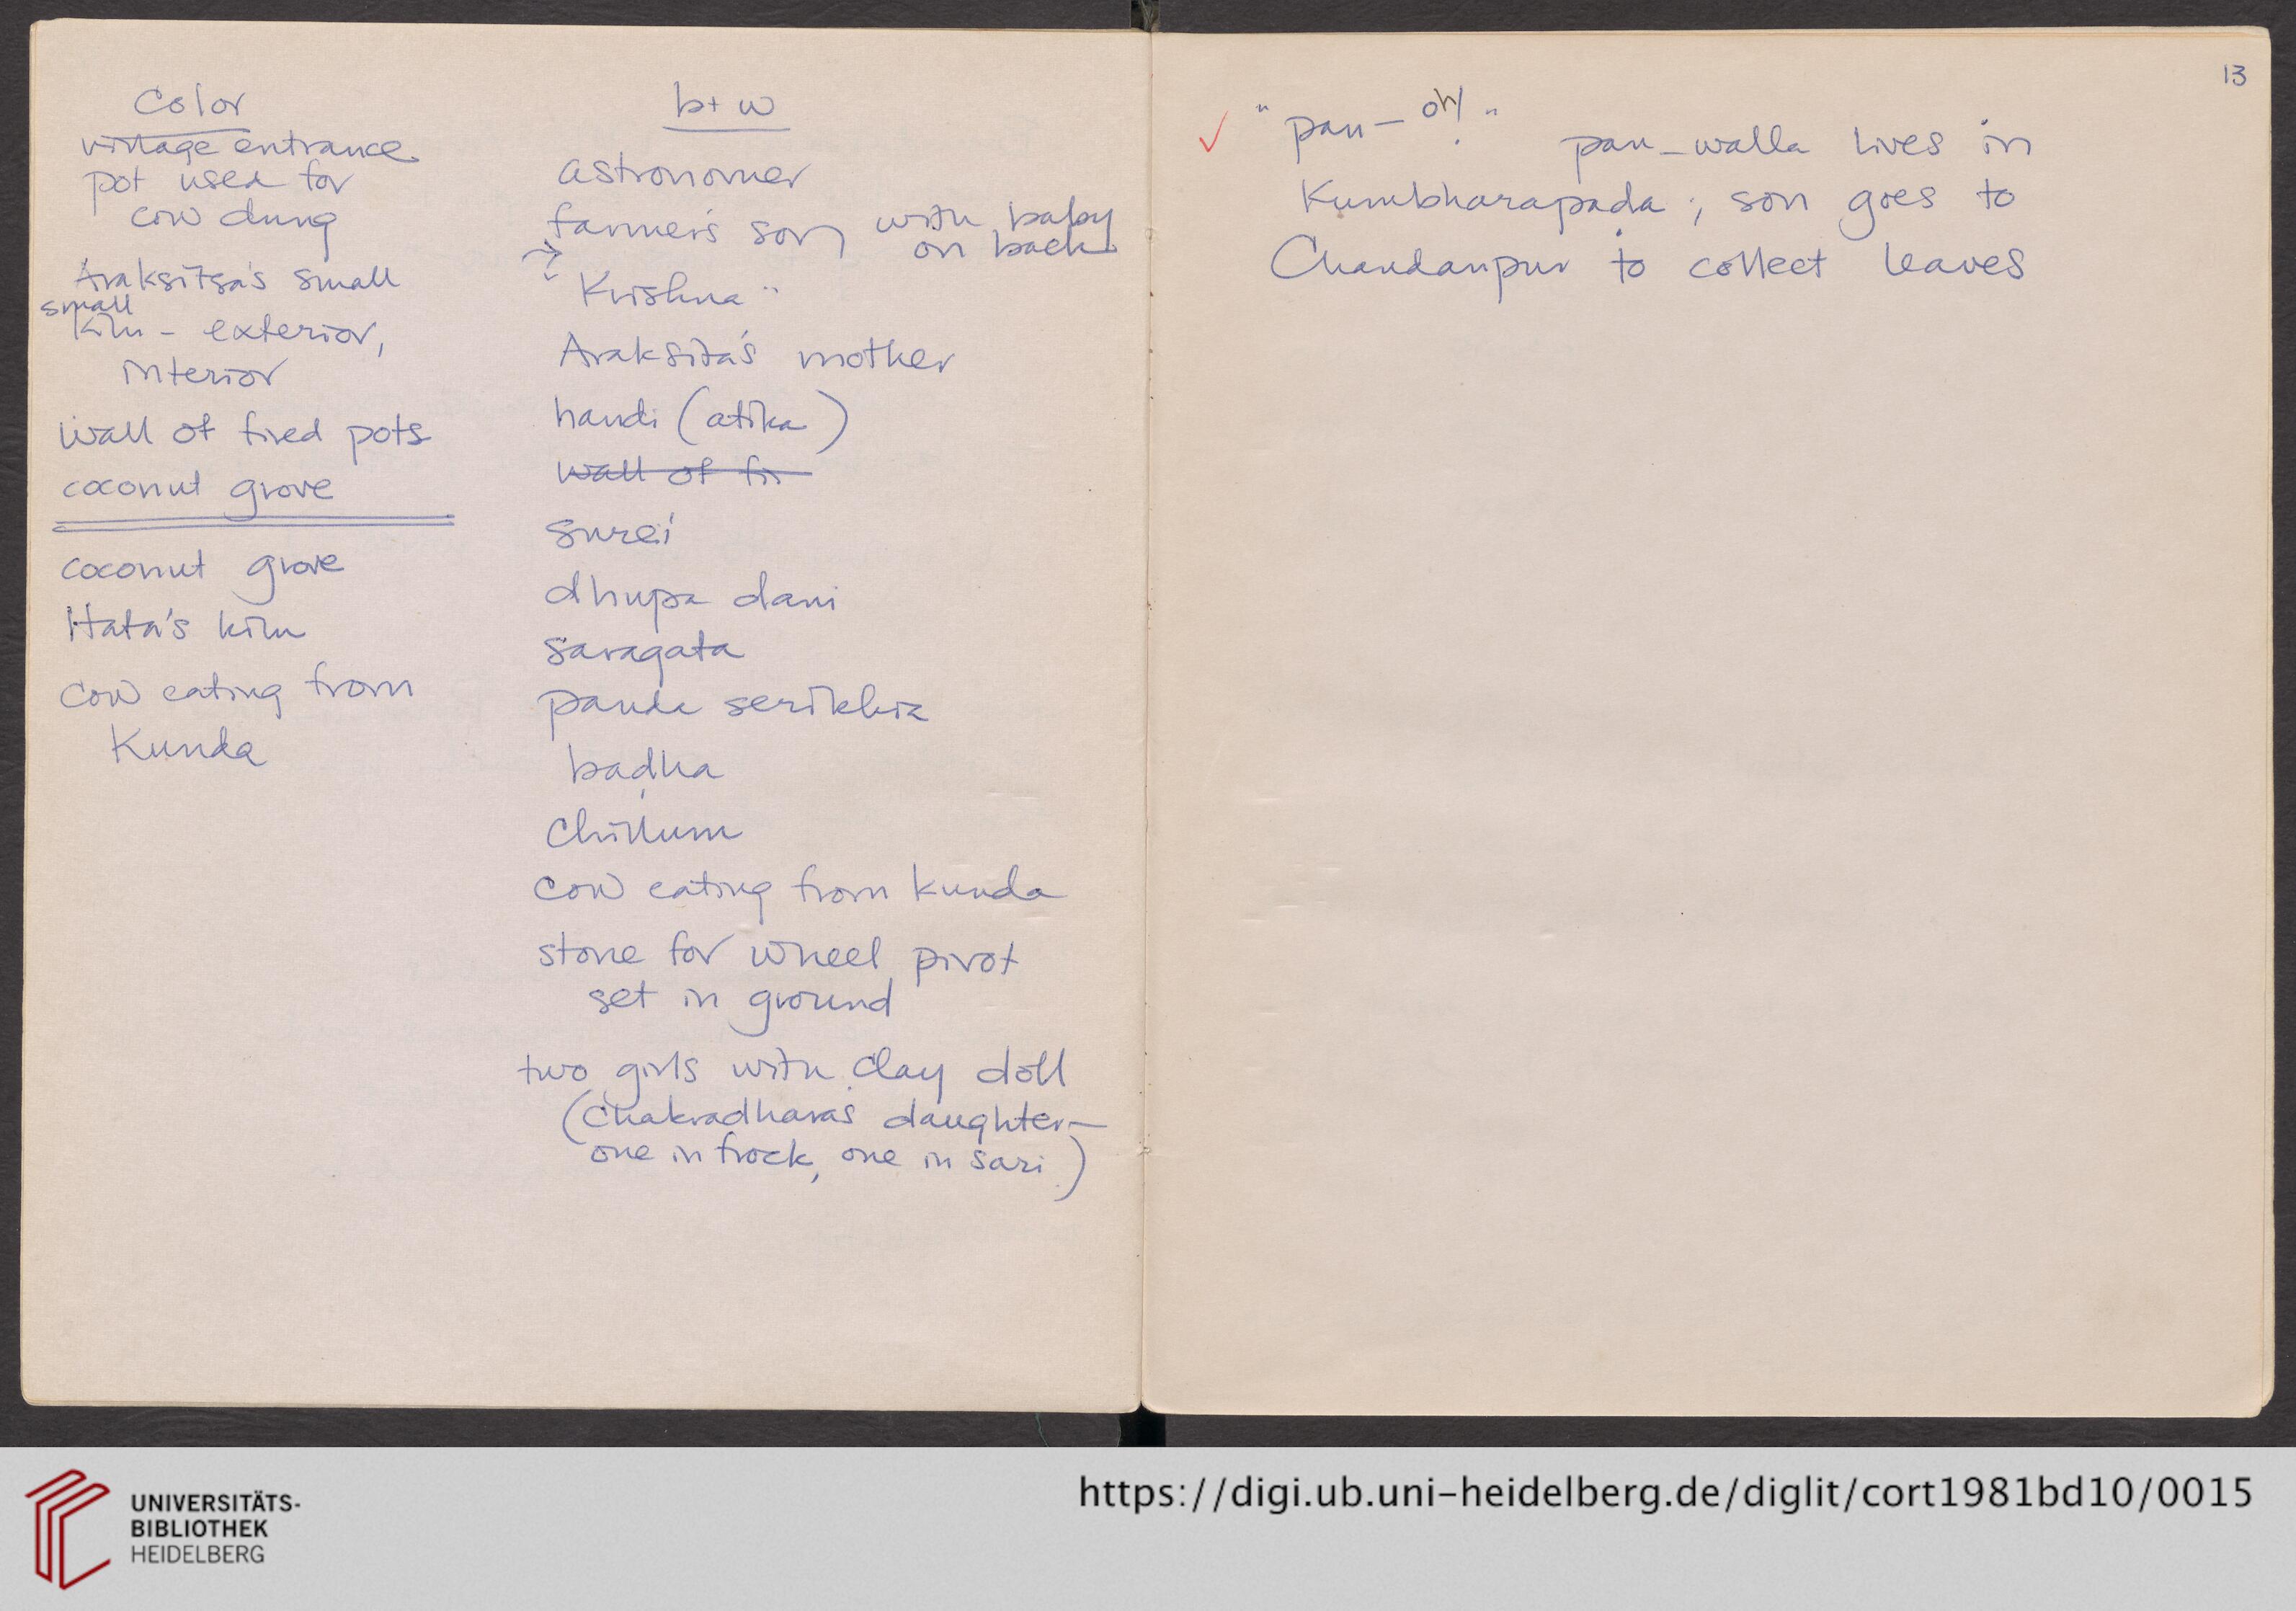 color
village entrance
pot used for
cow dung
Araksita's small
small
kiln - exterior,
interior
wall of fired pots
coconut grove
coconut grove
Hata's kiln
cow eating from
Kunda
b + w
astronomer
farmer's son, with baby
on back
→ Krishna "
Araksita's mother
handi (atika)
wall of fir
surei
dhupa dani
saragata
panda serikhia
badha
chillum
cow eating from kunda
stone for wheel pivot
set in ground
two girls with clay doll
(Chakradhara's daughter -
one in frock, one in sari)
13
✓ "pan - oh! " pan-walla lives in
Kumbharapada; son goes to
Chandanpur to collect leaves
UNIVERSITÄTS-
BIBLIOTHEK
HEIDELBERG
https://digi.ub.uni-heidelberg.de/diglit/cort1981bd10/0015